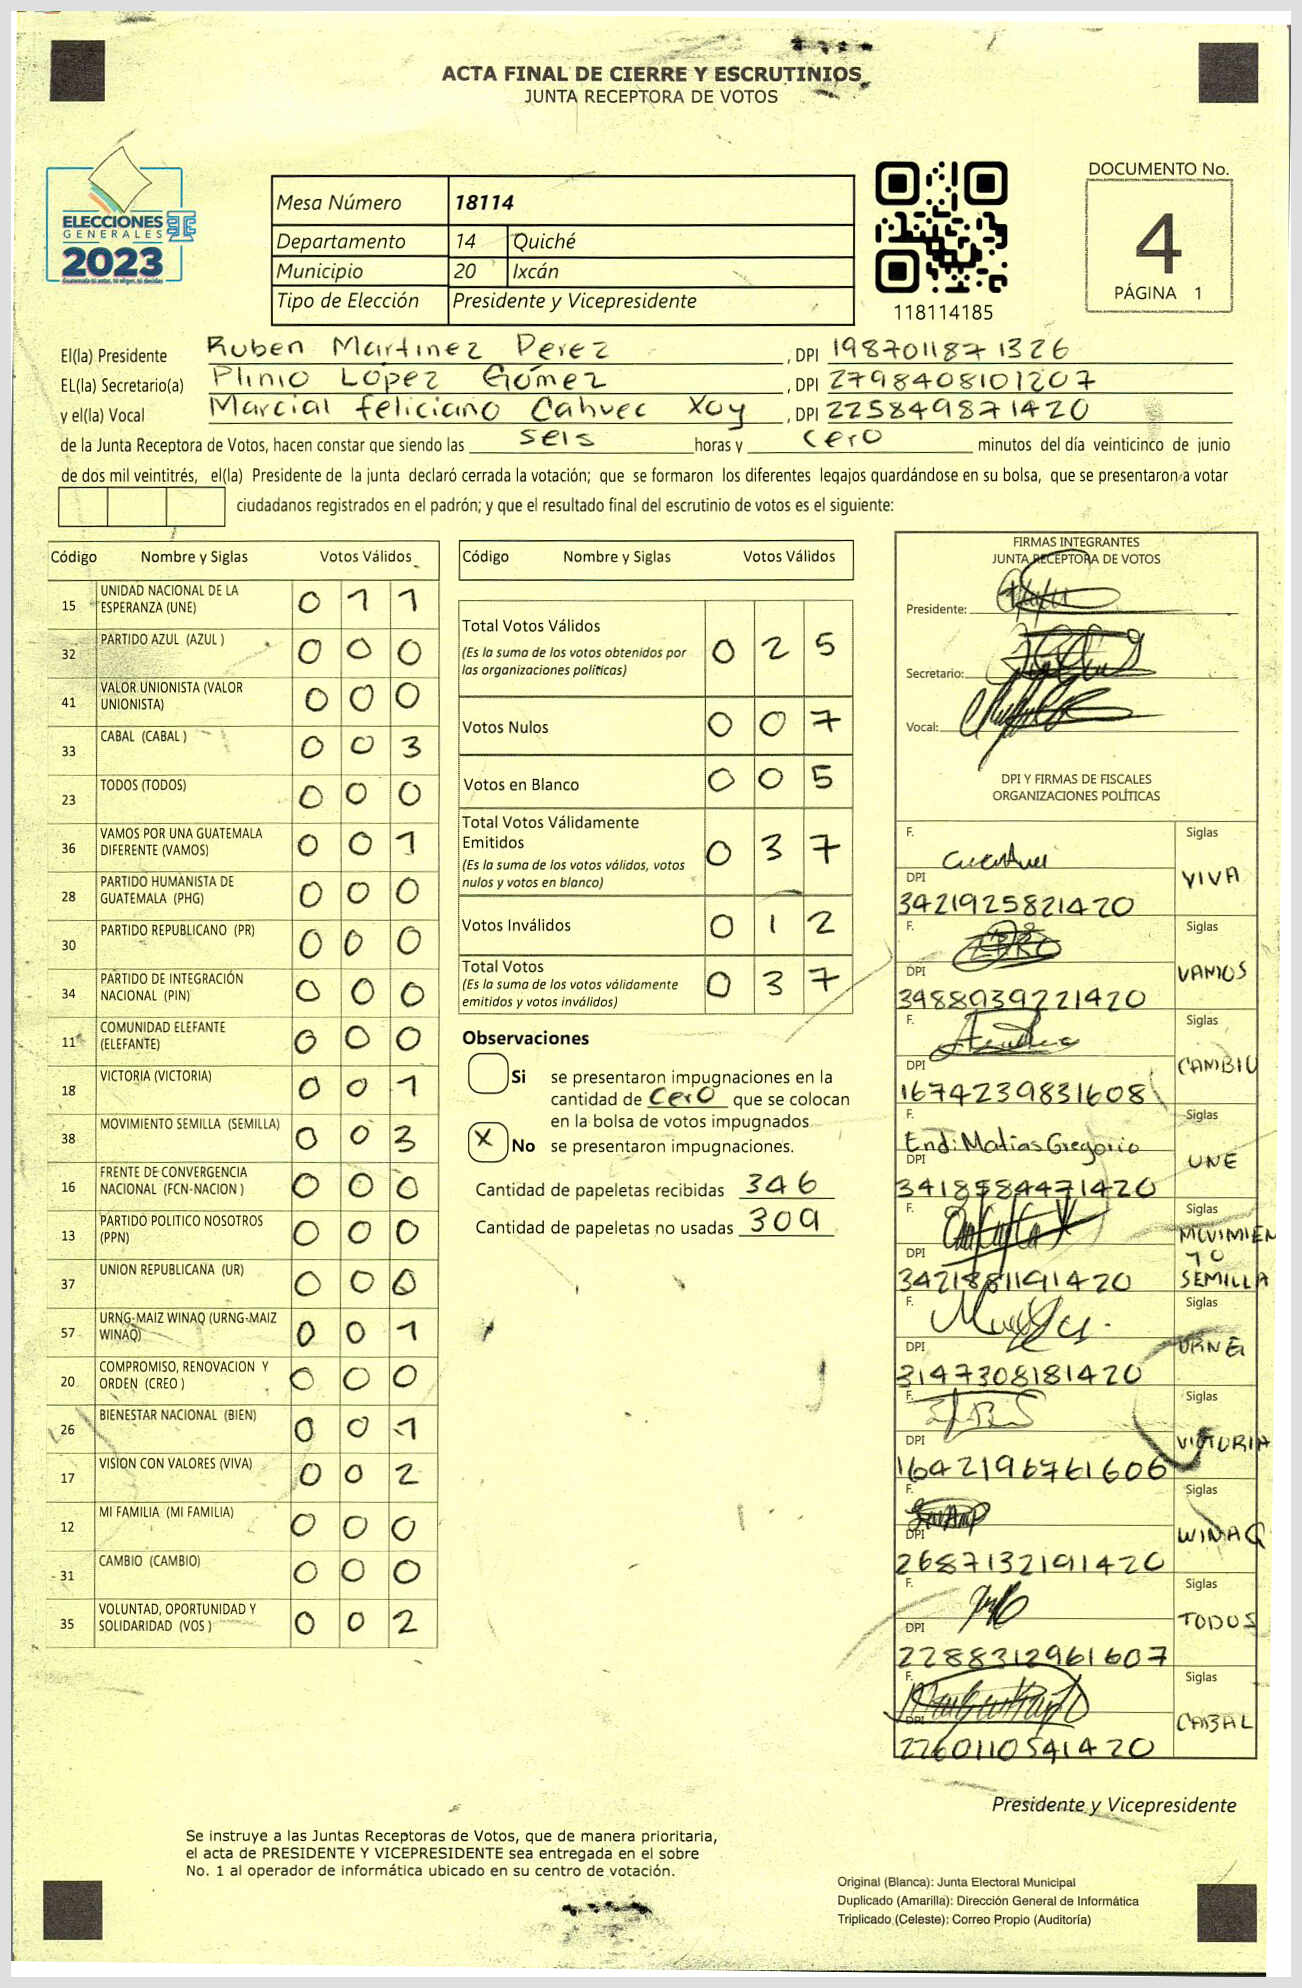 ACTA FINAL DE CIERRE Y ESCRUTINIOS
JUNTA RECEPTORA DE VOTOS
ELECCIONES
GENERALES
2023
Mesa Número 18114
Departamento 14 Quiché
Municipio 20 Ixcán
Tipo de Elección Presidente y Vicepresidente
118114185
DOCUMENTO No.
4
PÁGINA 1
El(la) Presidente Ruben Martinez Perez, DPI 1987011871326
EL(la) Secretario(a) Plinio López Gómez, DPI 2798408101207
y el(la) Vocal Marcial feliciano Cahuec Xoy, DPI 225849871420
de la Junta Receptora de Votos, hacen constar que siendo las seis horas y cero minutos del día veinticinco de junio
de dos mil veintitrés, el(la) Presidente de la junta declaró cerrada la votación; que se formaron los diferentes legajos guardándose en su bolsa, que se presentaron a votar
ciudadanos registrados en el padrón; y que el resultado final del escrutinio de votos es el siguiente:
Código Nombre y Siglas Votos Válidos
15 UNIDAD NACIONAL DE LA ESPERANZA (UNE) 0 1 1
32 PARTIDO AZUL (AZUL ) 0 0 0
41 VALOR UNIONISTA (VALOR UNIONISTA) 0 0 0
33 CABAL (CABAL ) 0 0 3
23 TODOS (TODOS) 0 0 0
36 VAMOS POR UNA GUATEMALA DIFERENTE (VAMOS) 0 0 1
28 PARTIDO HUMANISTA DE GUATEMALA (PHG) 0 0 0
30 PARTIDO REPUBLICANO (PR) 0 0 0
34 PARTIDO DE INTEGRACIÓN NACIONAL (PIN) 0 0 0
11 COMUNIDAD ELEFANTE (ELEFANTE) 0 0 0
18 VICTORIA (VICTORIA) 0 0 1
38 MOVIMIENTO SEMILLA (SEMILLA) 0 0 3
16 FRENTE DE CONVERGENCIA NACIONAL (FCN-NACION ) 0 0 0
13 PARTIDO POLITICO NOSOTROS (PPN) 0 0 0
37 UNION REPUBLICANA (UR) 0 0 0
57 URNG-MAIZ WINAQ (URNG-MAIZ WINAQ) 0 0 1
20 COMPROMISO, RENOVACION Y ORDEN (CREO ) 0 0 0
26 BIENESTAR NACIONAL (BIEN) 0 0 1
17 VISION CON VALORES (VIVA) 0 0 2
12 MI FAMILIA (MI FAMILIA) 0 0 0
31 CAMBIO (CAMBIO) 0 0 0
35 VOLUNTAD, OPORTUNIDAD Y SOLIDARIDAD (VOS ) 0 0 2
Código Nombre y Siglas Votos Válidos
Total Votos Válidos 0 2 5
(Es la suma de los votos obtenidos por
las organizaciones políticas)
Votos Nulos 0 0 7
Votos en Blanco 0 0 5
Total Votos Válidamente
Emitidos 0 3 7
(Es la suma de los votos válidos, votos
nulos y votos en blanco)
Votos Inválidos 0 1 2
Total Votos 0 3 7
(Es la suma de los votos válidamente
emitidos y votos inválidos)
Observaciones
Si se presentaron impugnaciones en la
cantidad de cero que se colocan
en la bolsa de votos impugnados
X No se presentaron impugnaciones.
Cantidad de papeletas recibidas 346
Cantidad de papeletas no usadas 309
FIRMAS INTEGRANTES
JUNTA RECEPTORA DE VOTOS
Presidente:
Secretario:
Vocal:
DPI Y FIRMAS DE FISCALES
ORGANIZACIONES POLÍTICAS
F. Siglas
DPI VIVA
3421925821420
F. Siglas
DPI VAMOS
3488939221420
F. Siglas
DPI CAMBIO
1674239831608
F. Siglas
Endi Matias Gregorio
DPI UNE
3418584471420
F. Siglas
DPI MOVIMIEN
TO
3421881191420 SEMILLA
F. Siglas
DPI URNG
3147308181420
F. Siglas
DPI VICTORIA
1642196761606
F. Siglas
DPI WINAQ
2687132191420
F. Siglas
DPI TODOS
2288312961607
F. Siglas
DPI CABAL
2260110541420
Presidente y Vicepresidente
Se instruye a las Juntas Receptoras de Votos, que de manera prioritaria,
el acta de PRESIDENTE Y VICEPRESIDENTE sea entregada en el sobre
No. 1 al operador de informática ubicado en su centro de votación.
Original (Blanca): Junta Electoral Municipal
Duplicado (Amarilla): Dirección General de Informática
Triplicado (Celeste): Correo Propio (Auditoría)